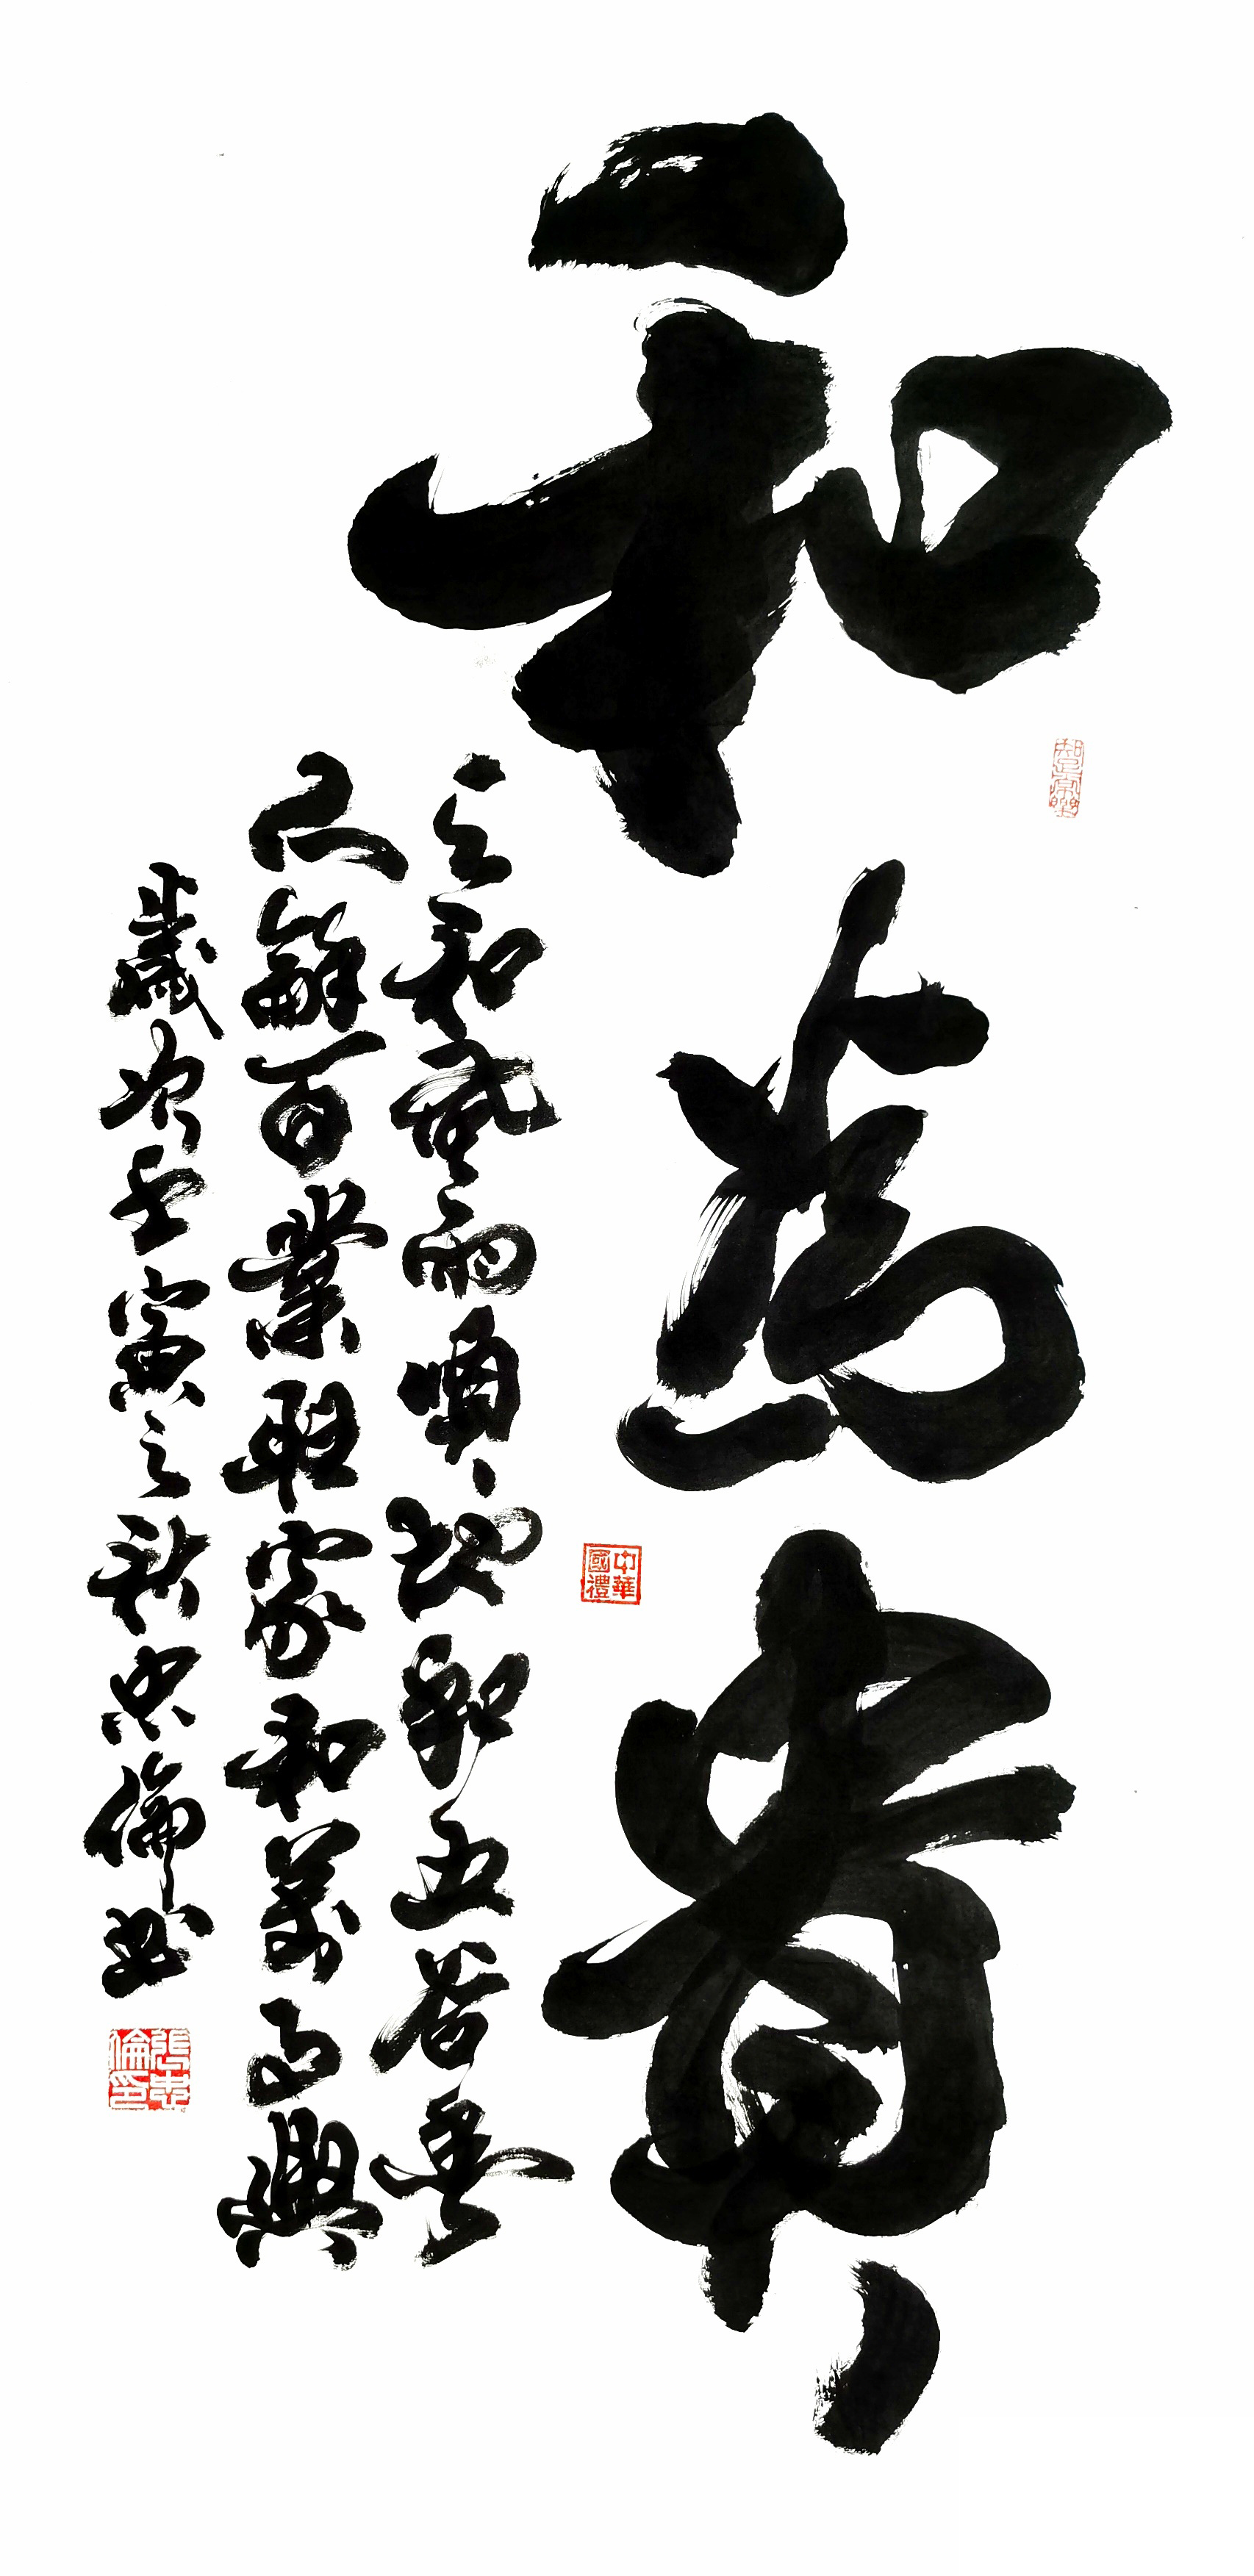 和為貴
中華國禮
天和風雨順地和五谷豐
人龢百業旺家和萬事興
歲次壬寅之秋忠倫書
張忠倫印